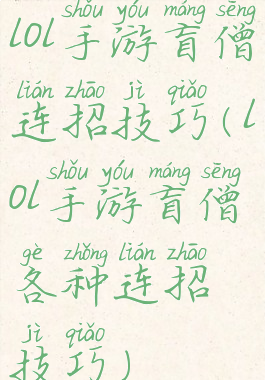 shǒu yóu máng sēng
lol手游盲僧
lián zhāo jì qiǎo
连招技巧(l
shǒu yóu máng sēng
ol手游盲僧
gè zhǒng lián zhāo
各种连招
jì qiǎo
技巧)